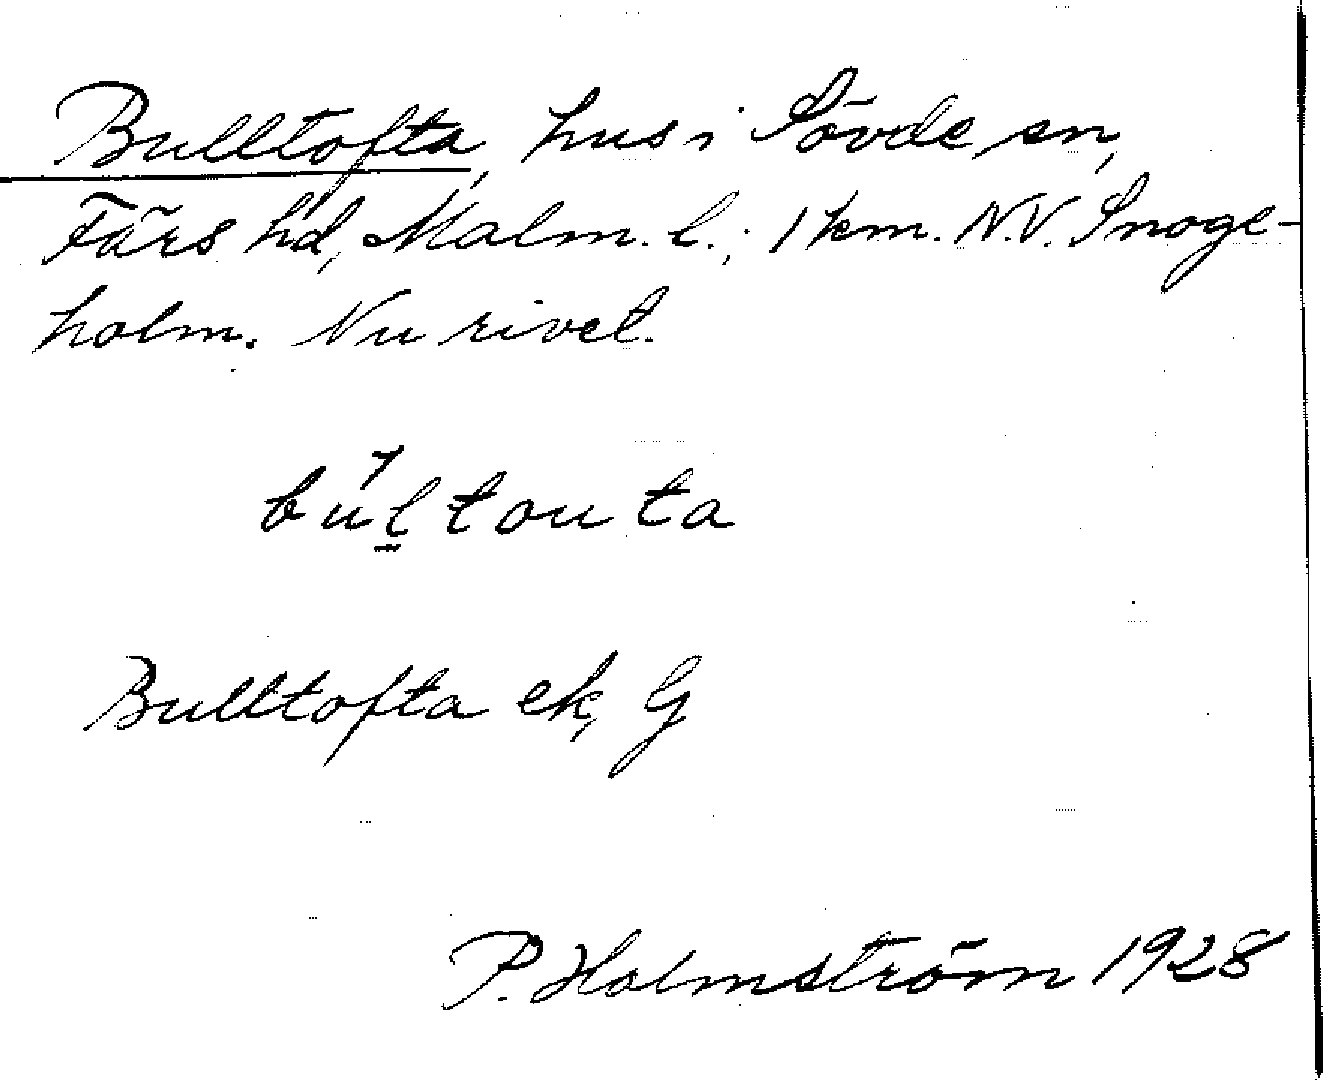 Bulltofta, hus i Sövde sn,
Färs hd, Malm. l.; 1 km. N.V. Snoge-
holm. Nu rivet.
bu̇l̲touta
Bulltofta ek, G
P. Holmström 1928